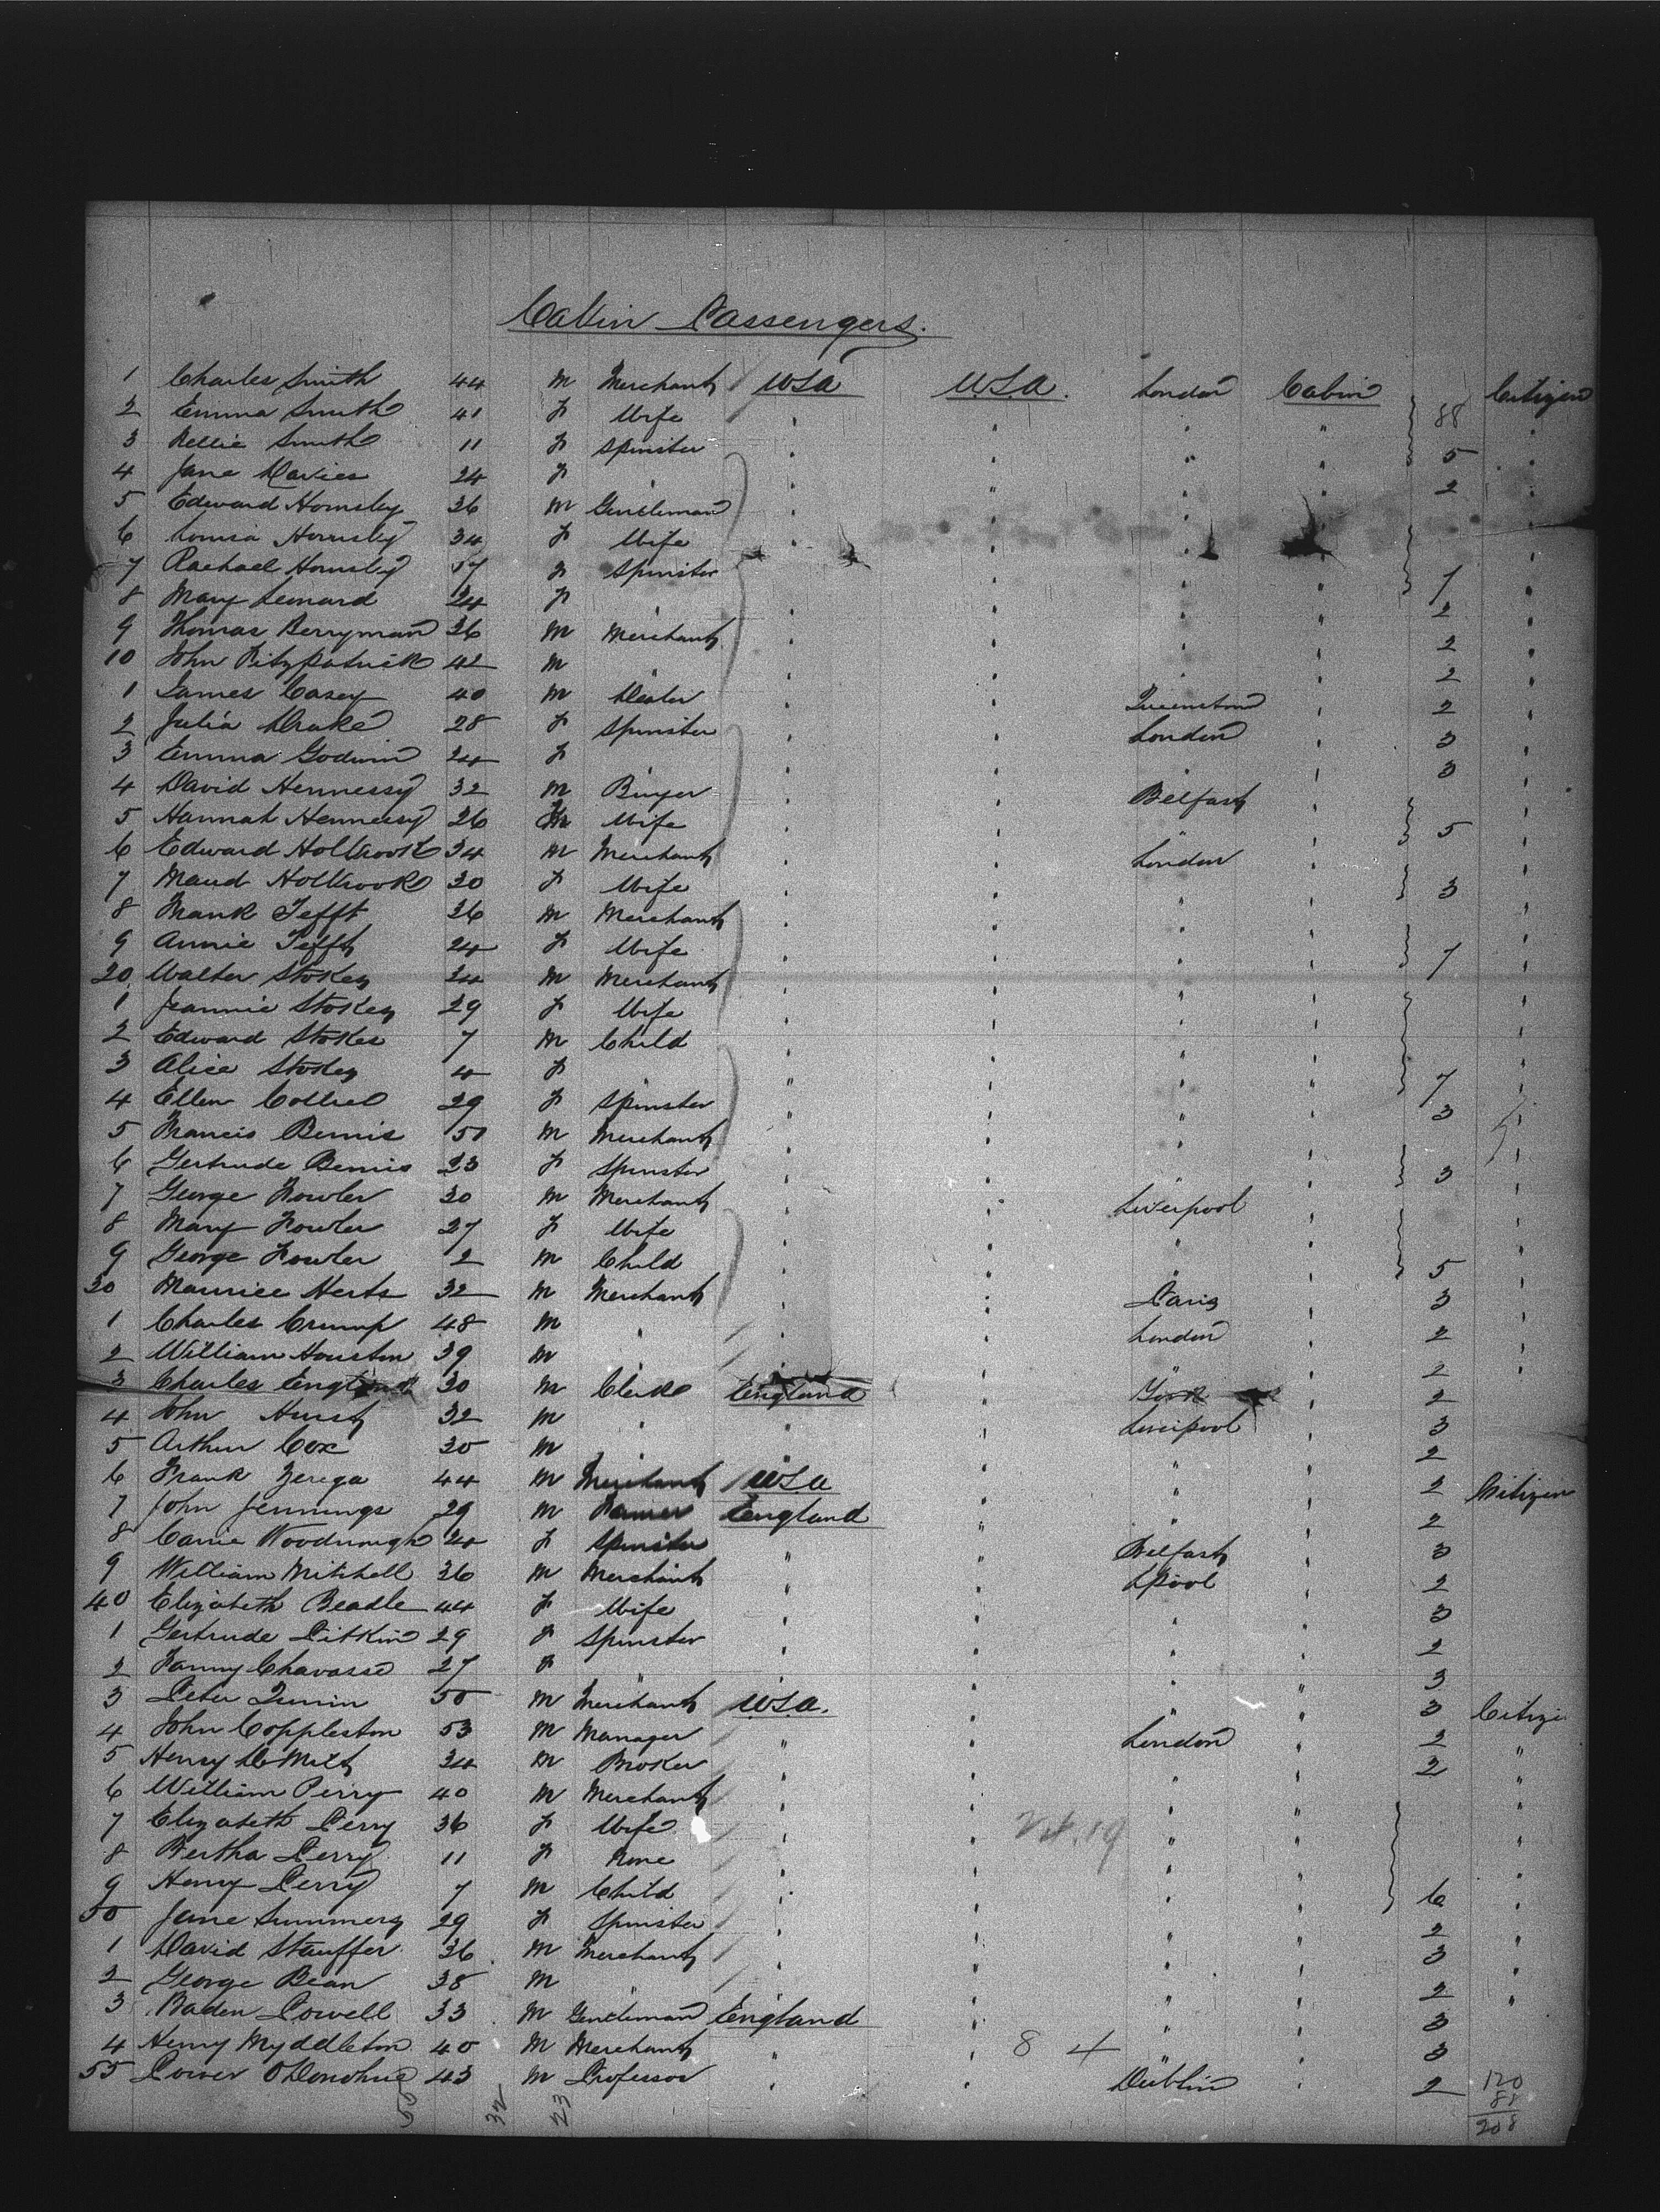 Cabin Passengers.
1 Charles Smith 44 M Merchant USA U.S.A. London Cabin 88 Citizen
2 Emma Smith 41 F Wife " " " "
3 Nellie Smith 11 F Spinster " " " " 5 "
4 Jane Davies 24 F " " " " " 2 "
5 Edward Hornsby 36 M Gentleman " " " " "
6 Louisa Hornsby 34 F Wife " " " " "
7 Rachael Hornsby 17 F Spinster " " " " 7 "
8 Mary Leonard 24 F " " " " " 2 "
9 Thomas Berryman 36 M Merchant " " " " 2 "
10 John Fitzpatrick 42 M " " " " " 2 "
1 James Casey 40 M Dealer " " Queenstown " 2 "
2 Julia Drake 28 F Spinster " " London " 3 "
3 Emma Godwin 24 F " " " " " 3 "
4 David Hennessy 32 M Buyer " " Belfast " "
5 Hannah Hennessy 26 F Wife " " " " 5 "
6 Edward Holbrook 34 M Merchant " " London " "
7 Maud Holbrook 30 F Wife " " " " 3 "
8 Frank Tefft 36 M Merchant " " " " "
9 Annie Tefft 24 F Wife " " " " 7 "
20 Walter Stokes 34 M Merchant " " " " "
1 Jeannie Stokes 29 F Wife " " " " "
2 Edward Stokes 7 M Child " " " " "
3 Alice Stokes 4 F " " " " " 7 "
4 Ellen Cottrel 29 F Spinster " " " " 3 "
5 Francis Bemis 51 M Merchant " " " " "
6 Gertrude Bemis 23 F Spinster " " " " 3 "
7 George Fowler 30 M Merchant " " Liverpool " "
8 Mary Fowler 27 F Wife " " " " "
9 George Fowler 2 M Child " " " " 5 "
30 Maurice Herts 32 M Merchant " " Paris " 3 "
1 Charles Crump 48 M " " " London " 2 "
2 William Houston 39 M " " " " " 2 "
3 Charles England 30 M Clerk England " York " 2
4 John Hurst 32 M " " " Liverpool " 3
5 Arthur Cox 30 M " " " " " 2
6 Frank Zerega 44 M Merchant USA " " " 2 Citizen
7 John Jennings 29 M Farmer England " " " 2
8 Carrie Woodrough 24 F Spinster " " Belfast " 3
9 William Mitchell 36 M Merchant " " Lpool " 2
40 Elizabeth Beadle 44 F Wife " " " " 3
1 Gertrude Pitkin 29 F Spinster " " " " 2
2 Fanny Chavasse 27 F " " " " " 3
3 Peter Quinin 50 M Merchant U.S.A. " " " 3 Citizen
4 John Coppleston 53 M Manager " " London " 2 "
5 Henry DeMilt 34 M Broker " " " " 2 "
6 William Perry 40 M Merchant " " " " "
7 Elizabeth Perry 36 F Wife " " " " "
8 Bertha Perry 11 F None " " " " "
9 Henry Perry 7 M Child " " " " 6 "
50 Jane Summers 29 F Spinster " " " " 2 "
1 David Stauffer 36 M Merchant " " " " 3 "
2 George Bean 38 M " " " " " 2 "
3 Baden Powell 33 M Gentleman England " " " 3
4 Henry Myddleton 40 M Merchant " " 8 4 " " 3
55 Power O'Donohue 43 M Professor " " Dublin " 2 120
55 32 23 88
208